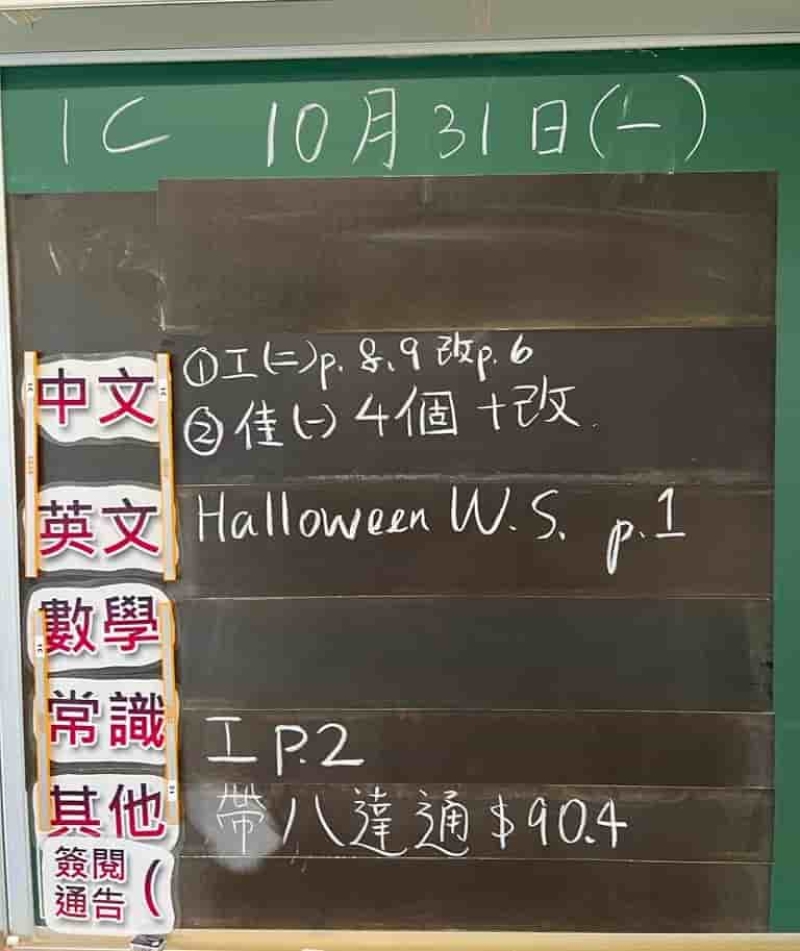 1C 10月31日(一)
中文 ①工(二)p.8、9 改p.6
②佳(一) 4個+改
英文 Halloween W.S. p.1
數學
常識 工 P.2
其他 帶八達通 $90.4
簽閱
通告 (